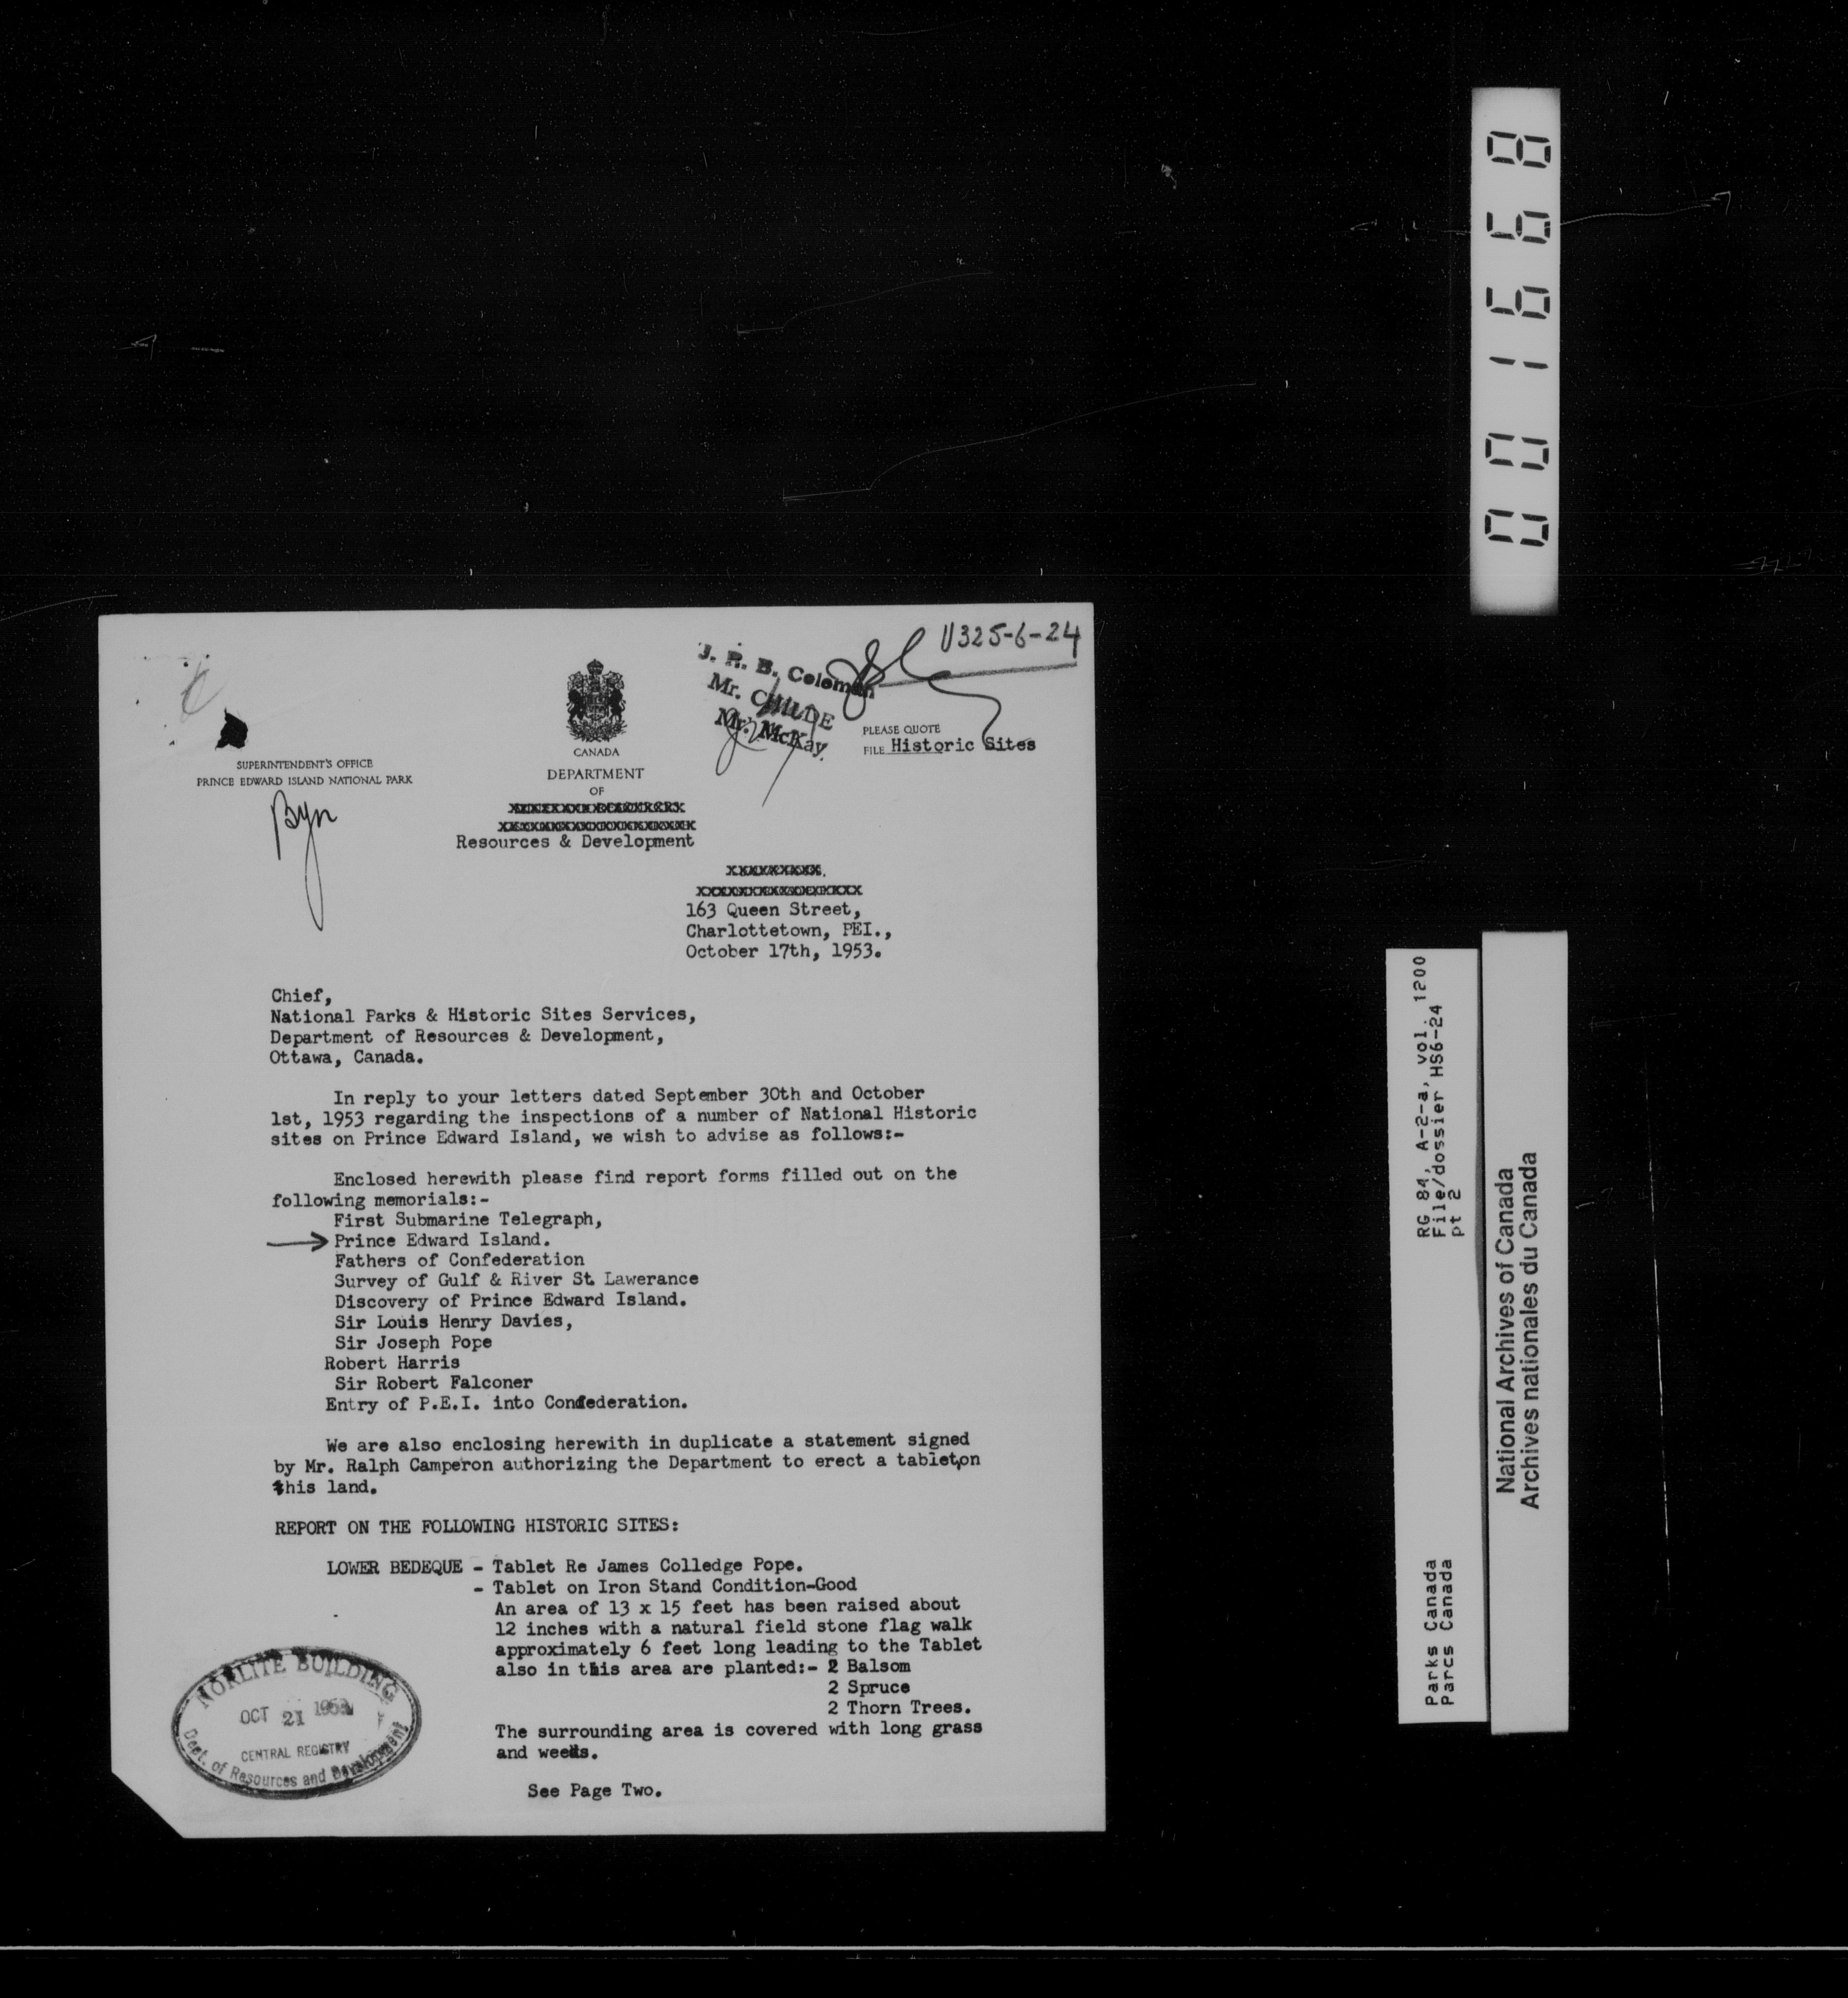 001668
U325-6-24
J. R. B. Coleman
Mr. CHILDE
Mr. McKay
PLEASE QUOTE
FILE Historic Sites
CANADA
DEPARTMENT
OF
Resources & Development
SUPERINTENDENT'S OFFICE
PRINCE EDWARD ISLAND NATIONAL PARK
163 Queen Street,
Charlottetown, PEI.,
October 17th, 1953.
Chief,
National Parks & Historic Sites Services,
Department of Resources & Development,
Ottawa, Canada.
In reply to your letters dated September 30th and October
1st, 1953 regarding the inspections of a number of National Historic
sites on Prince Edward Island, we wish to advise as follows:-
Enclosed herewith please find report forms filled out on the
following memorials:-
First Submarine Telegraph,
Prince Edward Island.
Fathers of Confederation
Survey of Gulf & River St. Lawerance
Discovery of Prince Edward Island.
Sir Louis Henry Davies,
Sir Joseph Pope
Robert Harris
Sir Robert Falconer
Entry of P.E.I. into Confederation.
We are also enclosing herewith in duplicate a statement signed
by Mr. Ralph Camperon authorizing the Department to erect a tablet on
this land.
REPORT ON THE FOLLOWING HISTORIC SITES:
LOWER BEDEQUE - Tablet Re James Colledge Pope.
- Tablet on Iron Stand Condition-Good
An area of 13 x 15 feet has been raised about
12 inches with a natural field stone flag walk
approximately 6 feet long leading to the Tablet
also in this area are planted:- 2 Balsom
2 Spruce
2 Thorn Trees.
The surrounding area is covered with long grass
and weeds.
See Page Two.
NORLITE BUILDING
OCT 21 1953
CENTRAL REGISTRY
Dept. of Resources and Development
RG 84, A-2-a, vol. 1200
File/dossier HS6-24
pt 2
Parks Canada
Parcs Canada
National Archives of Canada
Archives nationales du Canada